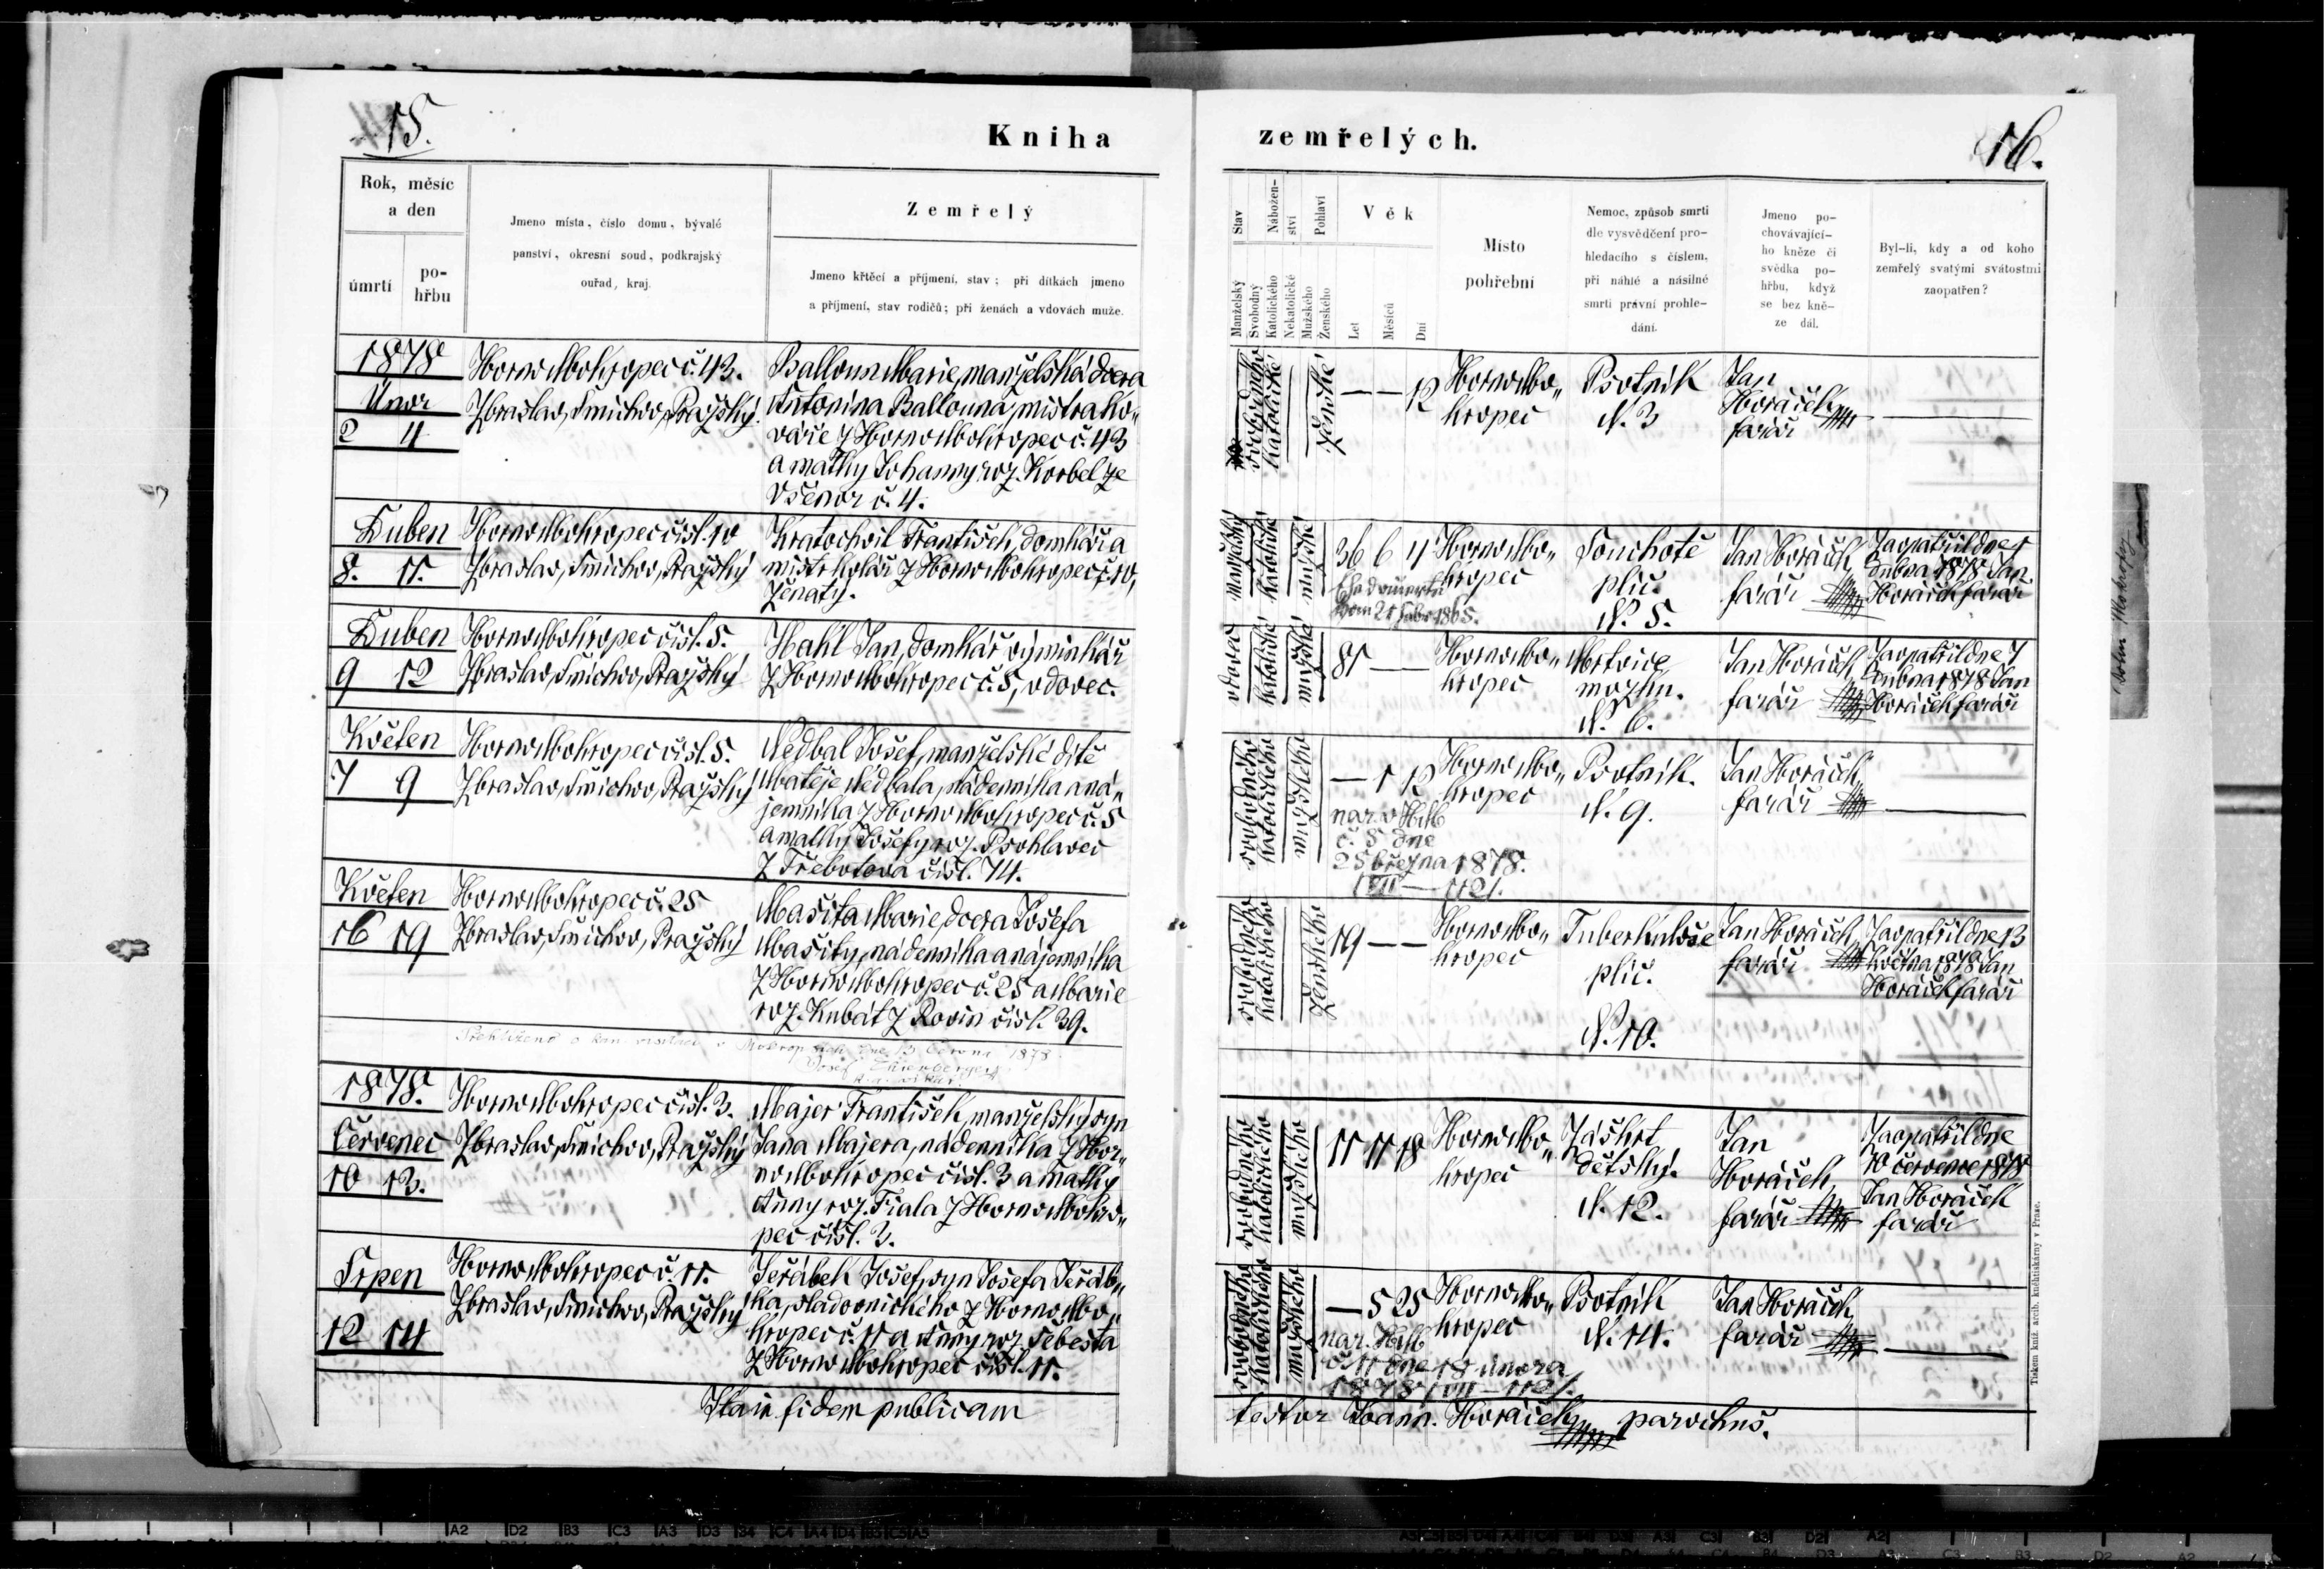 15.
Kniha
zemřelých.
16.
Rok, měsíc
a den
úmrtí
po-
hřbu
Jmeno místa, číslo domu, bývalé
panství, okresní soud, podkrajský
ouřad, kraj.
Zemřelý
Jmeno křtěcí a příjmení, stav; při dítkách jmeno
a příjmení, stav rodičů; při ženách a vdovách muže.
Stav
Manželský
Svobodný
Nábožen-
ství
Katolického
Nekatolické
Pohlaví
Mužského
Ženského
Věk
Let
Měsíců
Dní
Místo
pohřební
Nemoc, způsob smrti
dle vysvědčení pro-
hledacího s číslem,
při náhlé a násilné
smrti právní prohle-
dání.
Jmeno po-
chovávající-
ho kněze či
svědka po-
hřbu, když
se bez kně-
ze dál.
Byl-li, kdy a od koho
zemřelý svatými svátostmi
zaopatřen?
1878
Únor
2 4
Horno Mokropec č. 43.
Zbraslav, Smíchov, Pražský.
Balloun Marie, manželská dcera
Antonína Ballouna, mistra ko„
váře z Horno Mokropec č. 43
a matky Johanny roz. Korbel ze
Všenor č. 4.
svobodného
katolické
ženské
— — 12
Horno Mo„
kropec
Psotník
N. 3
Jan
Horáček
farář
Duben
8. 11.
Horno Mokropec čísl. 10
Zbraslav, Smíchov, Pražský
Kratochvil František, domkář a
mistr kolář z Horno Mokropec č. 10,
ženatý.
Manželský
katolické
mužské
36 6 4
vom 21 1865.
Horno Mo„
kropec
Souchotě
plic.
N. 5.
Jan Horáček
farář
Zaopatřil dne 1
dubna 1878 Jan
Horáček farář
Duben
9 12
Horno Mokropec čísl. 5.
Zbraslav, Smíchov, Pražský
Hahl Jan, domkář výminkář
z Horno Mokropec č. 5, vdovec.
vdovec
katolické
mužské
81 — —
Horno Mo„
kropec
Mrtvice
mozku.
N. 6.
Jan Horáček
farář
Zaopatřil dne 7
dubna 1878 Jan
Horáček farář
Květen
7 9
Horno Mokropec čísl. 5.
Zbraslav, Smíchov, Pražský
Nedbal Josef, manželské dítě
Matěje Nedbala, nádenníka a ná„
jemníka z Horno Mokropec č. 5
a matky Josefy roz. Psohlavec
z Třebotova čísl. 74.
svobodného
katolického
mužského
— 1 12
nar. v HM
č. 5 dne
25 března 1878.
VII — 1121.
Horno Mo„
kropec
Psotník.
N. 9.
Jan Horáček
farář
Květen
16 19
Horno Mokropec č. 25
Zbraslav, Smíchov, Pražský
Mašita Marie, dcera Josefa
Mašity, nádenníka a nájemníka
z Horno Mokropec č. 25 a Marie
roz. Kubát z Rovin čísl. 39.
svobodného
katolického
ženského
19 — —
Horno Mo„
kropec
Tuberkulose
plic.
N. 10.
Jan Horáček
farář
Zaopatřil dne 13
května 1878 Jan
Horáček farář
Přehlíženo o kan. visitaci v Mokropcích dne 13 června 1878
Josef
1878.
Červenec
10 13.
Horno Mokropec čísl. 3.
Zbraslav, Smíchov, Pražský
Majer František, manželský syn
Jana Majera, nádenníka z Hor„
no Mokropec čísl. 3 a matky
Anny roz. Fiala z Horno Mokro„
pec čísl. 3.
svobodného
katolického
mužského
11 11 18
Horno Mo„
kropec
Záškrt
dětský.
N. 12.
Jan
Horáček
farář
Zaopatřil dne
10 července 1878
Jan Horáček
farář
Srpen
12 14
Horno Mokropec č. 11.
Zbraslav, Smíchov, Pražský
Jeřábek Josef, syn Josefa Jeřáb„
ka, sladovnického z Horno Mo„
kropec č. 11 a Anny roz. Šebesta
z Horno Mokropec čísl. 11.
svobodného
katolického
mužského
— 5 25
nar. HM
č. 11 dne 18 února
1878 VII — 1121.
Horno Mo„
kropec
Psotník
N. 14.
Jan Horáček
farář
Ita in fidem publicam
testor Joann. Horáček parochus.
Tiskem kníž. arcib. knihtiskárny v Praze.
Dolní Mokropsy